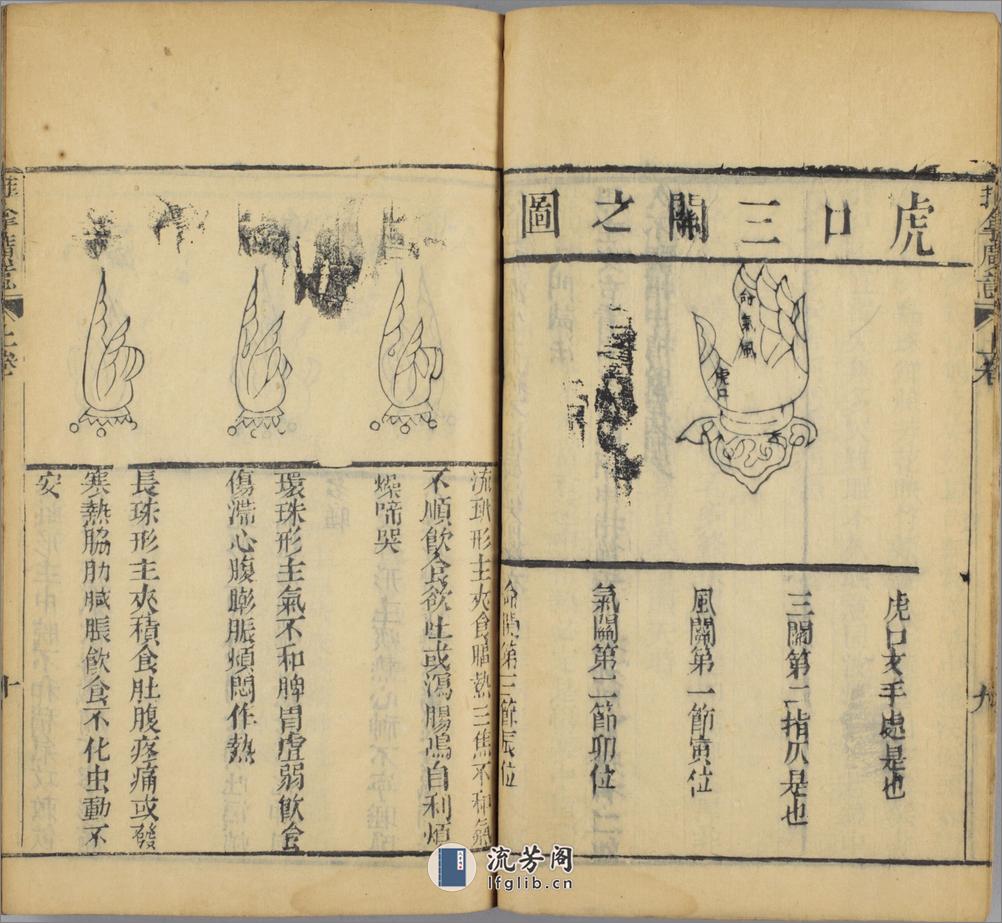 虎口三關之圖
命氣風
虎口
虎口叉手處是也
三關第二指仄是也
風關第一節寅位
氣關第二節卯位
命關第三節辰位
九
流珠形主夾食膈熱三焦不和氣
不順飲食欲吐或瀉腸鳴自利煩
燥啼哭
環珠形主氣不和脾胃虛弱飲食
傷滯心腹膨脹煩悶作熱
長珠形主夾積食肚腹疼痛或發
寒熱脇肋臌脹飲食不化虫動不
安
上卷
十
流芳阁
lfglib.cn